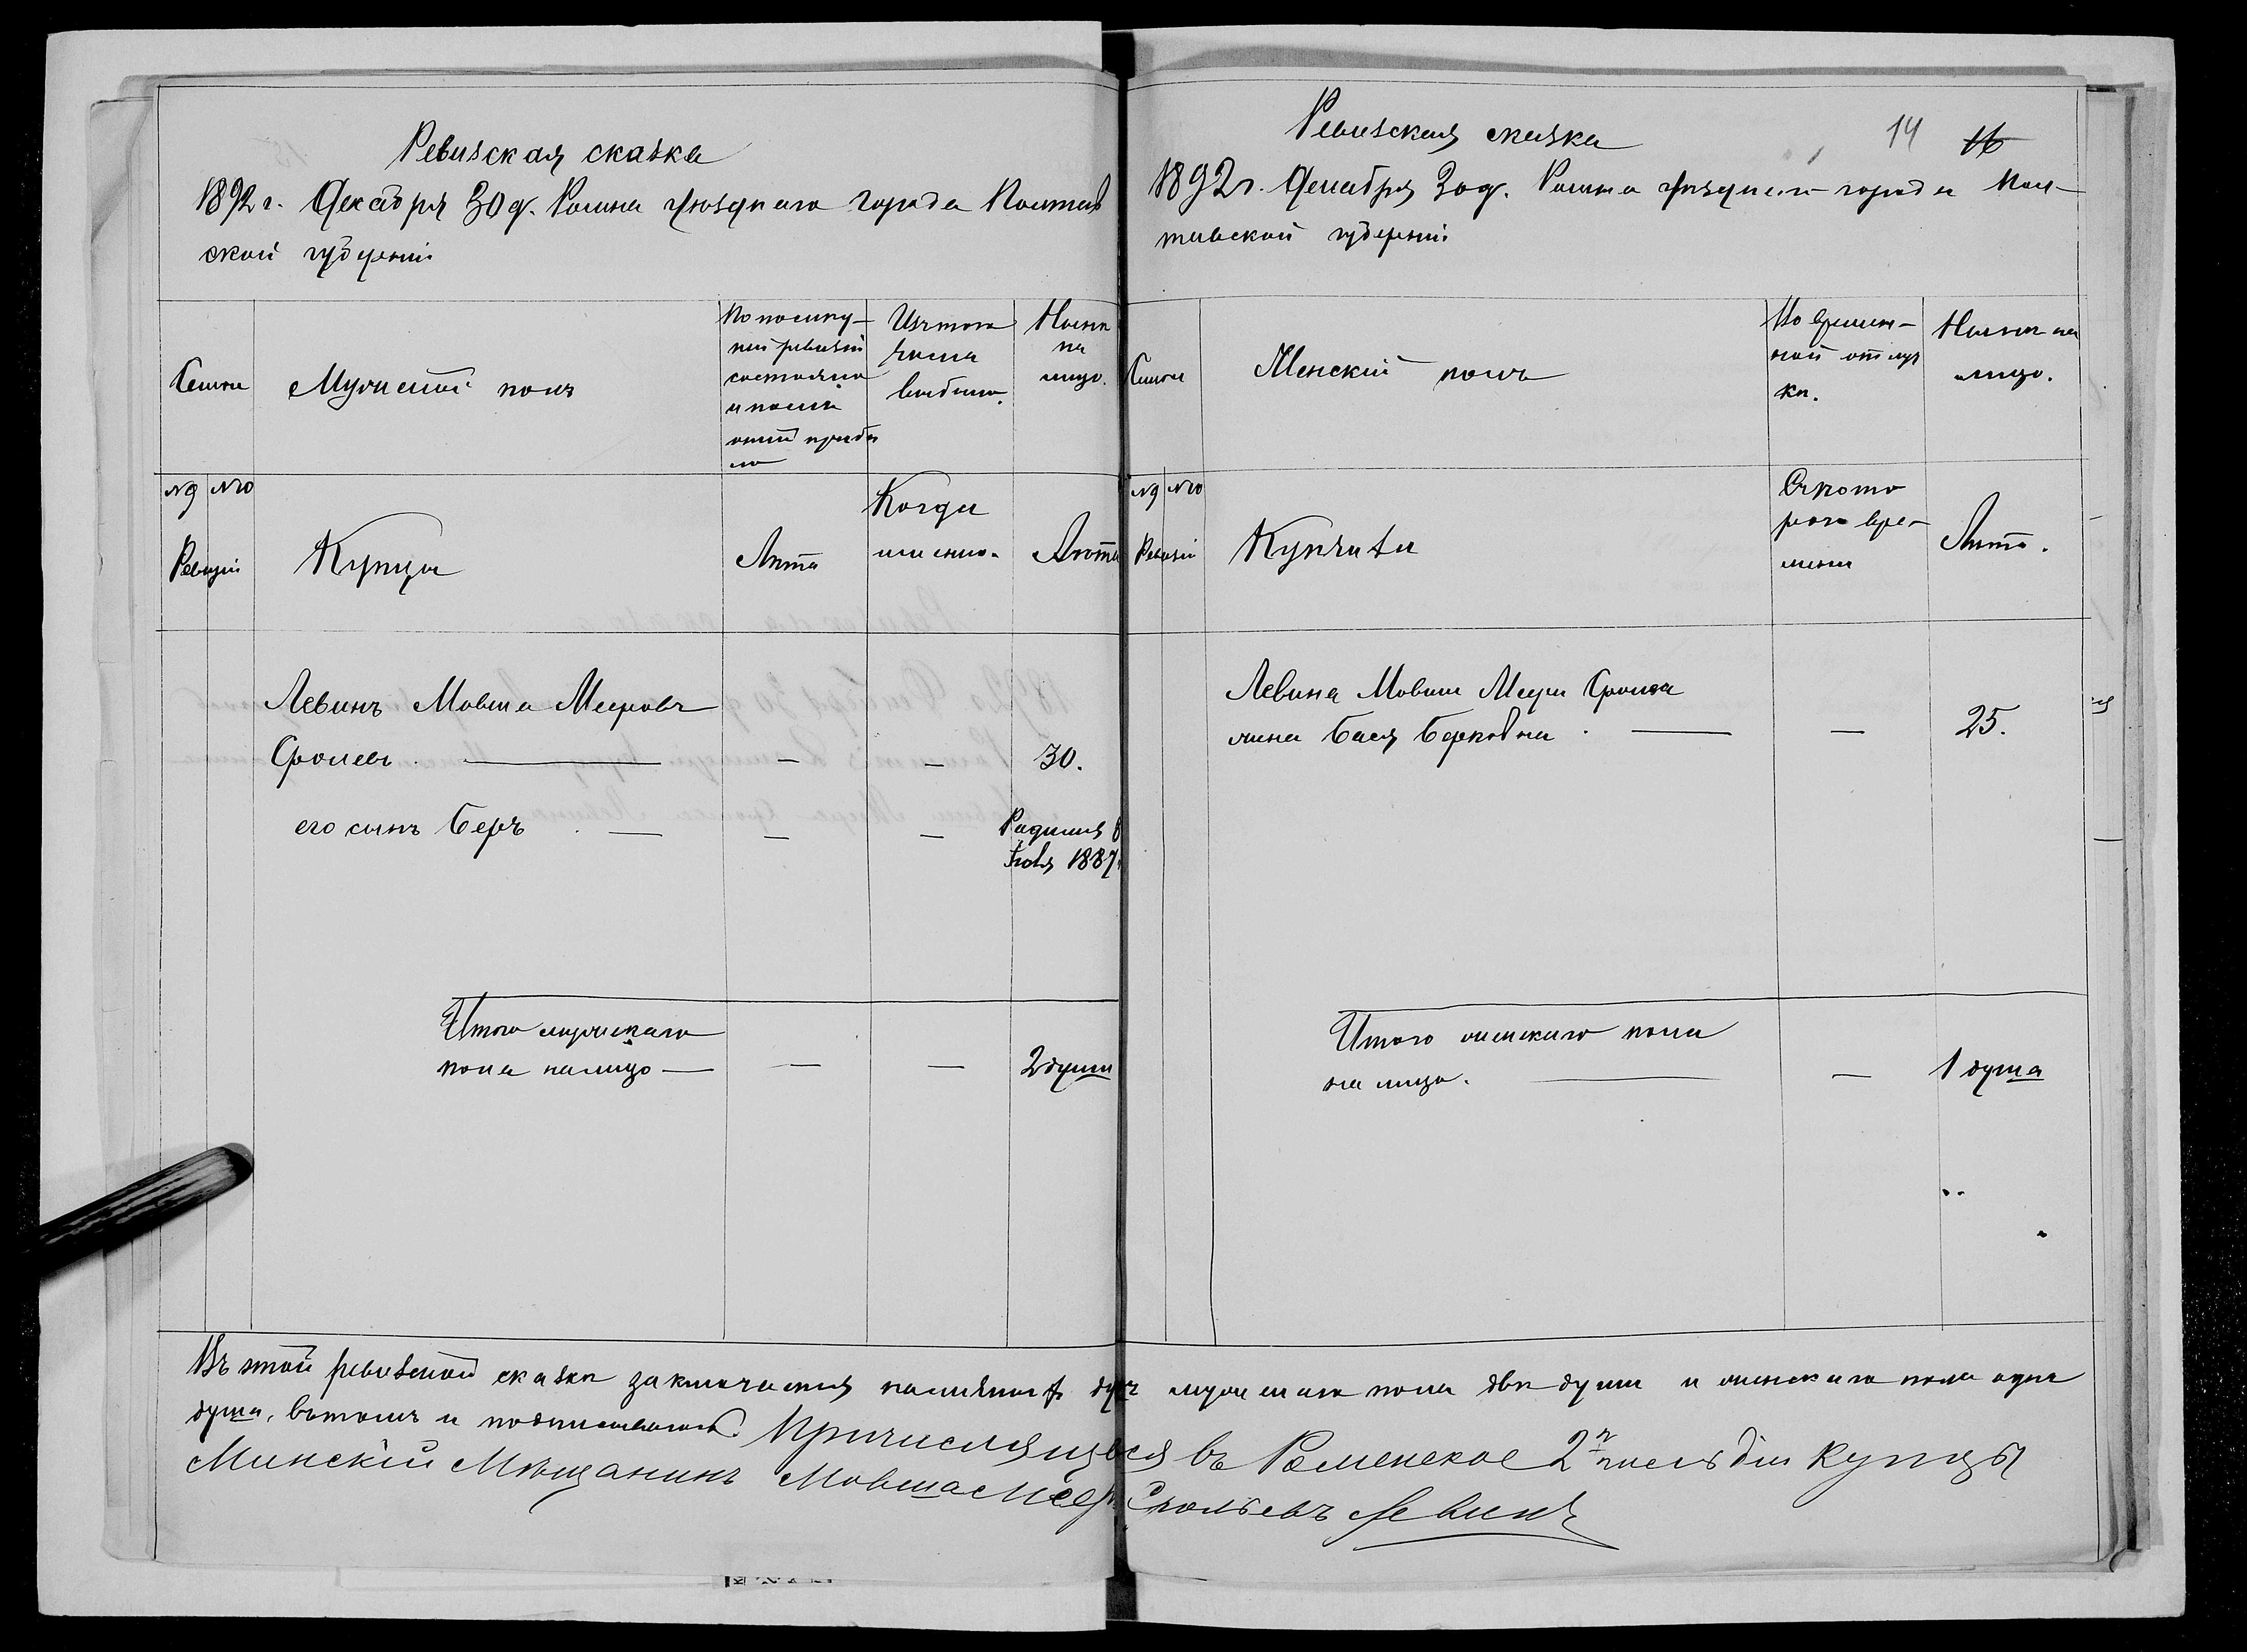 Ревизская сказка
1892 г. Декабря 30 д. Ромна уѣзднаго города Полтав
ской губерніи
Семьи
Мужескій полъ
По послѣд-
ней ревизіи
состояло
и послѣ
оной прибы
ло
Изъ того
числа
выбыло.
Нынѣ
на
лицо.
№9 №10
Ревизіи
Купцы
Лѣта
Когда
именно.
Лѣта
Левинъ Мовша Мееровъ
Сролевъ. — — — 30.
его сынъ Беръ. — — — Родился 8
1887
Итого мужескаго
пола налицо — — — 2 души
Ревизская сказка
14 16
1892 г. Декабря 30 д. Ромна уѣзднаго города Пол-
тавской губерніи
Семьи
Женскій полъ
Во времен-
ной отлуч
кѣ.
Нынѣ на
лицо.
№9 №10
Ревизіи
Купчихи
Съ кото
раго вре-
мени
Лѣта.
Левина Мовши Меера Сролева
жена Бася Берковна. — — 25.
Итого женскаго пола
на лицо. — — 1 душа
Въ этой ревизской сказкѣ заключается наличныхъ душъ мужескаго пола двѣ души и женскаго пола одна
душа, въ томъ и подписываюсь Причисляющійся въ Роменское 2й гильдіи купцы
Минскій Мѣщанинъ Мовша Меер Срольевъ Левинъ